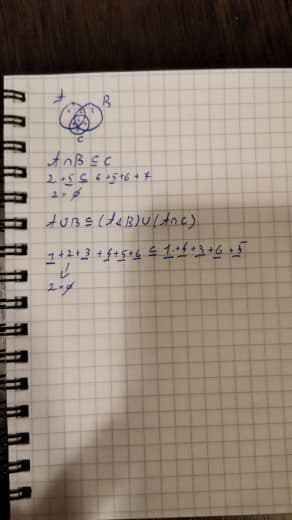 A
B
C
A∩B ⊆ C
2+5 ⊆ 4+5+6+7
2=∅
A∪B ⊆ (A∆B)∪(A∩C)
1+2+3+4+5+6 ⊆ 1+4+3+6+5
2=∅